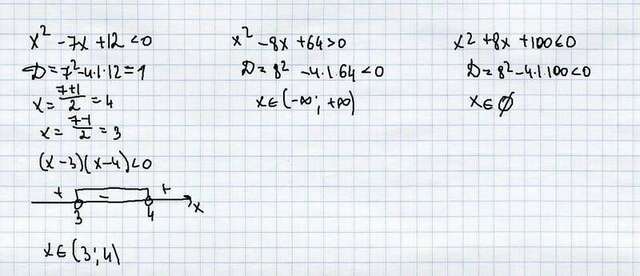 x² - 7x + 12 < 0
D = 7² - 4·1·12 = 1
x = (7+1)/2 = 4
x = (7-1)/2 = 3
(x-3)(x-4) < 0
+ - +
3 4 x
x ∈ (3; 4)
x² - 8x + 64 > 0
D = 8² - 4·1·64 < 0
x ∈ (-∞; +∞)
x² + 8x + 100 ≤ 0
D = 8² - 4·1·100 < 0
x ∈ ∅